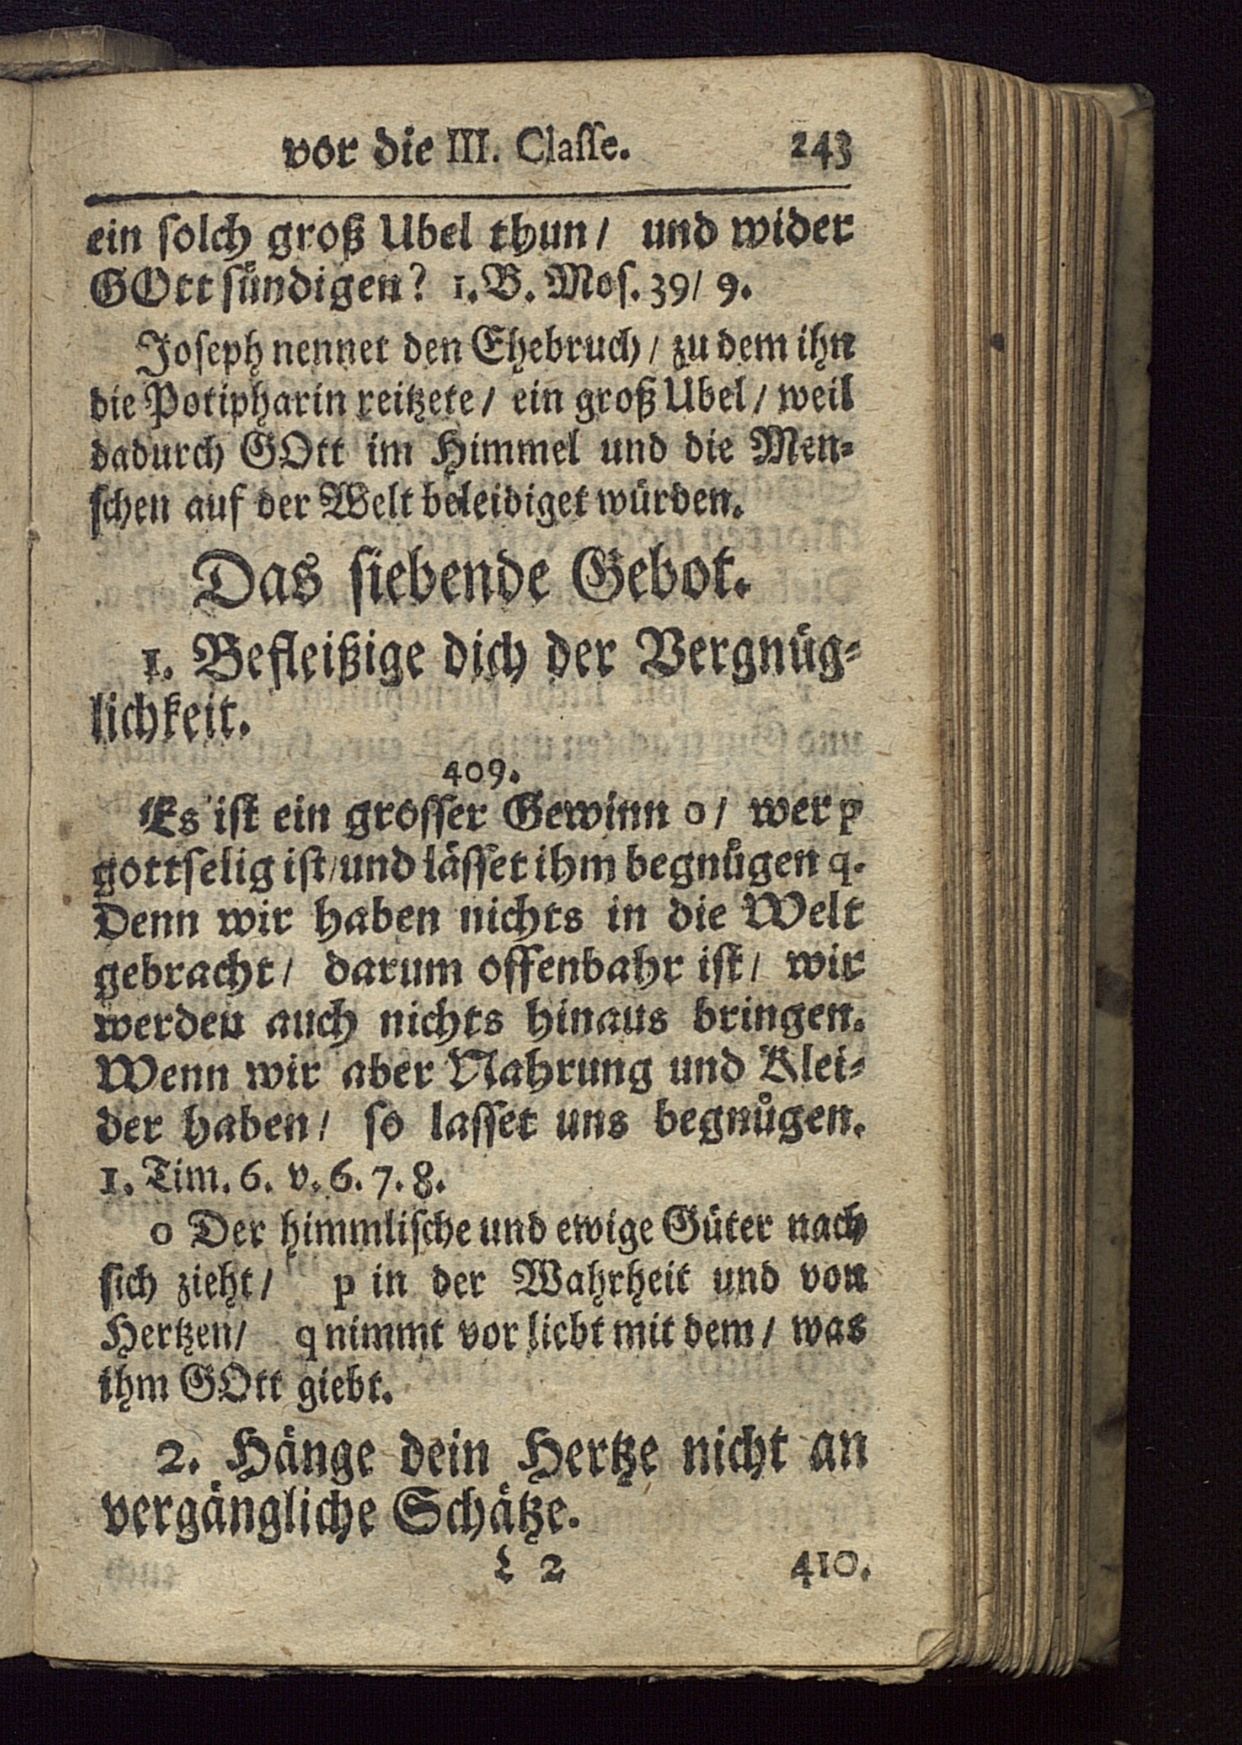 vor die III. Classe. 243
ein solch groß Ubel thun / und wider
GOtt sündigen? 1. B. Mos. 39 / 9.
Joseph nennet den Ehebruch / zu dem ihn
die Potipharin reitzete / ein groß Ubel / weil
dadurch GOtt im Himmel und die Men-
schen auf der Welt beleidiget würden.
Das siebende Gebot.
1. Befleißige dich der Vergnüg-
lichkeit.
409.
Es ist ein grosser Gewinn o / wer p
gottselig ist / und lässet ihm begnügen q.
Denn wir haben nichts in die Welt
gebracht / darum offenbahr ist / wir
werden auch nichts hinaus bringen.
Wenn wir aber Nahrung und Klei-
der haben / so lasset uns begnügen.
1. Tim. 6. v. 6. 7. 8.
o Der himmlische und ewige Güter nach
sich zieht / p in der Wahrheit und von
Hertzen / q nimmt vor liebt mit dem / was
ihm GOtt giebt.
2. Hänge dein Hertze nicht an
vergängliche Schätze.
L 2 410.